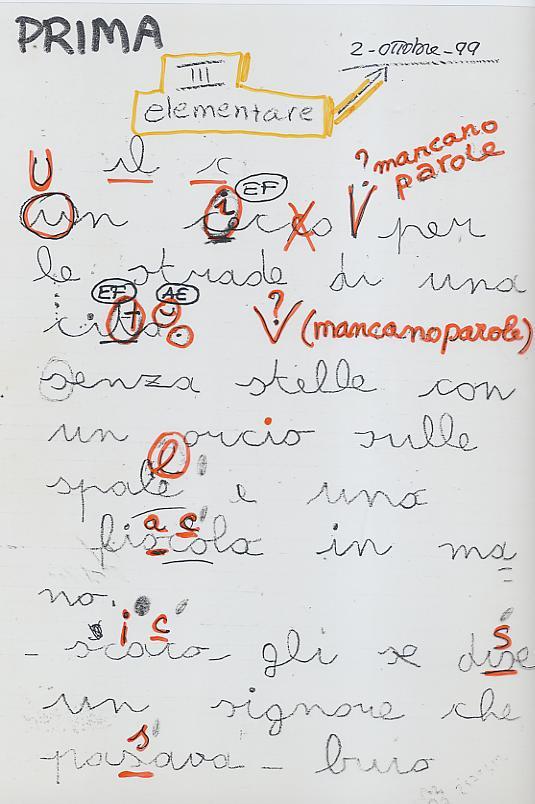 PRIMA
2-ottobre-99
III
elementare
U il c
? mancano
parole
EF
un per
le strade di una
EF AE
?
V (mancano parole)
senza stelle con
un orcio sulle
l
spale e una
a c
fiacola in ma
no.
i c
- gli se dise
s
un signore che
s
pasava - buio